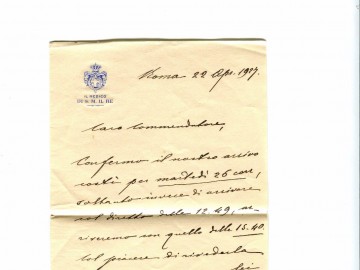 IL MEDICO
DI S. M. IL RE
Roma 22 Apr. 1907.
Caro Commendatore,
Confermo il nostro arrivo
costì per martedì 26 corr,
soltanto invece di arrivare
col diretto delle 12.49, ar-
riveremo con quello delle 15.40.
Col piacere di rivederla